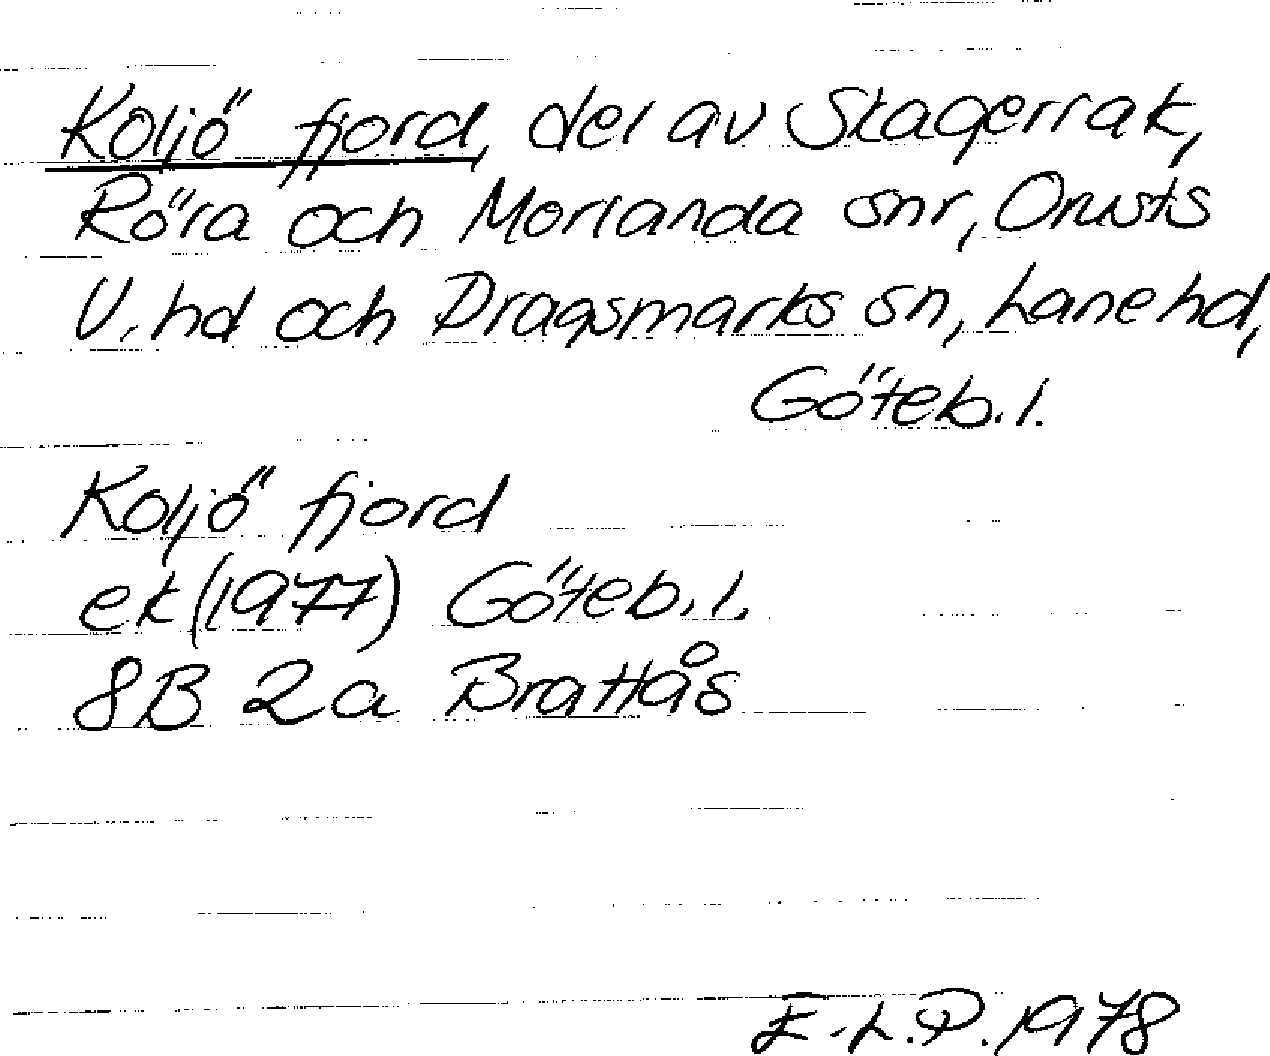 Koljö fjord, del av Skagerrak,
Röra och Morlanda snr, Orusts
V. hd och Dragsmarks sn, Lane hd,
Göteb. l.
Koljö fjord
ek (1977) Göteb. l.
8B 2a Brattås
E.L.P. 1978